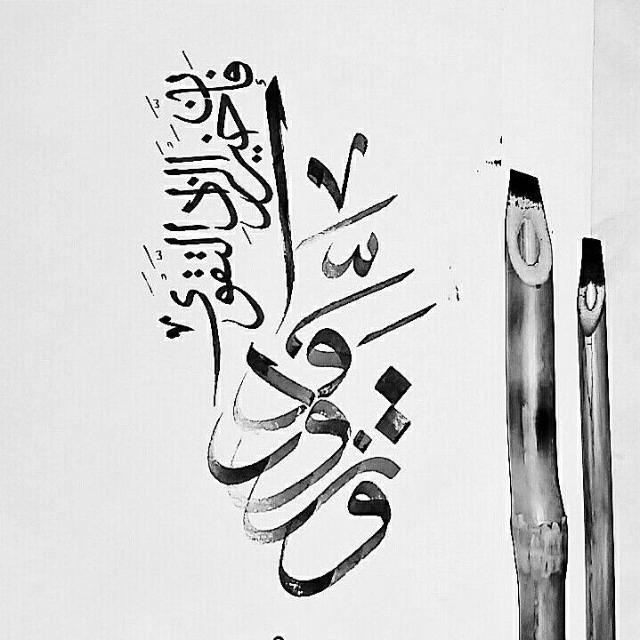 وَتَزَوَّدُوا
فَإِنَّ خَيْرَ الزَّادِ التَّقْوَى